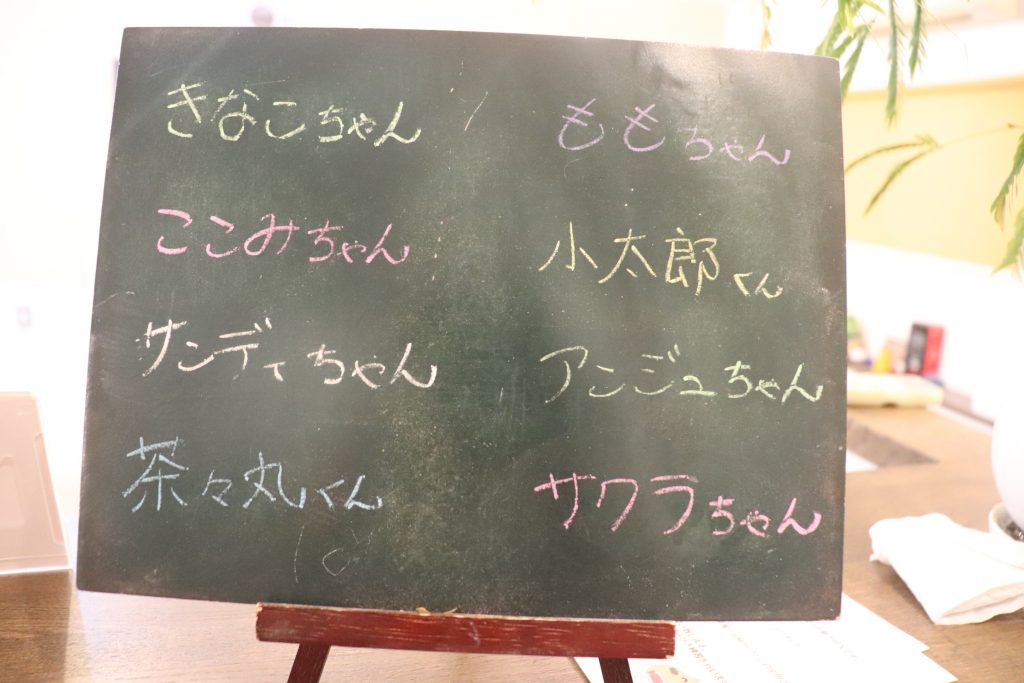 きなこちゃん
ここみちゃん
サンディちゃん
茶々丸くん
ももちゃん
小太郎くん
アンジュちゃん
サクラちゃん